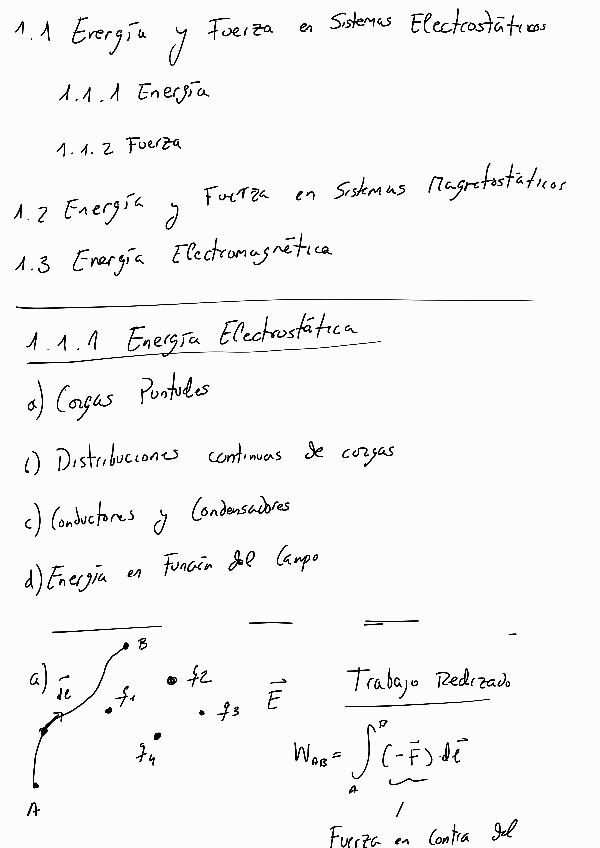 1.1 Energía y Fuerza en Sistemas Electrostáticos
1.1.1 Energía
1.1.2 Fuerza
1.2 Energía y Fuerza en Sistemas Magnetostáticos
1.3 Energía Electromagnética
1.1.1 Energía Electrostática
a) Cargas Puntuales
() Distribuciones continuas de cargas
c) Conductores y Condensadores
d) Energía en Función del Campo
a) dl B q1 q2 q3 q4 E A
Trabajo Realizado
W_AB = ∫_A^B (-F) · dl
Fuerza en Contra del